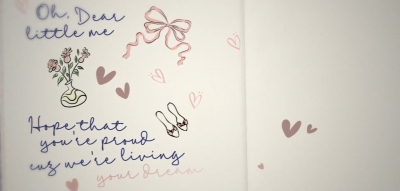 Oh. Dear
little me
Hope that
you're proud
cuz we're living
your dream